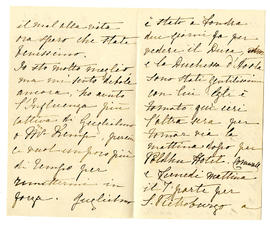 il mal alla vita
ora spero che state
benissimo.
Io sto molto meglio
ma mi sento debole
ancora, ho avuto
l'Influenza più
cattiva di Guglielmo
o Mr Kemp. pure
e vuol un poco più
di tempo per
rimettermi in
forza. Guglielmo
è stato a Londra
due giorni fa per
vedere il Duca
e la Duchessa d'Aosta
sono stati gentilissimi
con lui. Egli è
tornato qui ieri
l'altra sera per
tornar via la
mattina dopo per
Poldhu Hotel. Cornwall
e Venerdì mattina
il 1° parte per
S. Pietroburgo a